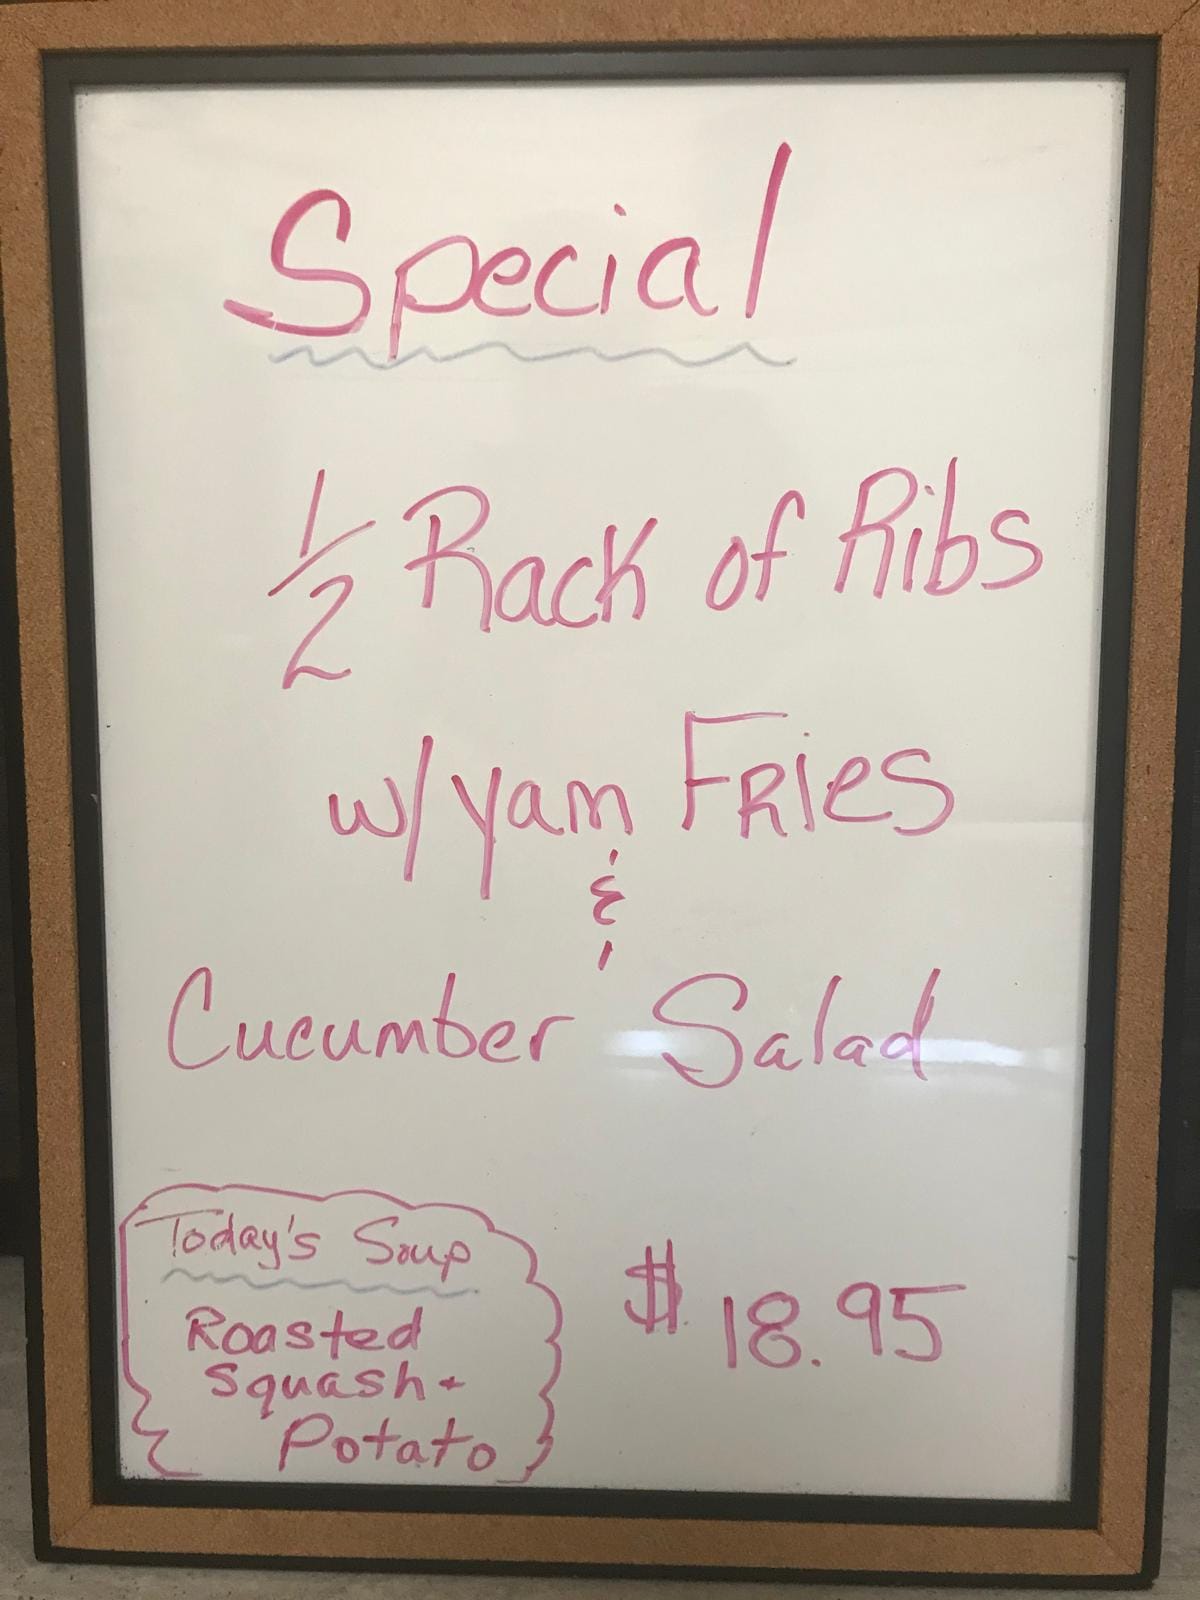 Special
1/2 Rack of Ribs
w/ yam Fries
&
Cucumber Salad
Today's Soup
Roasted
Squash +
Potato
$ 18.95